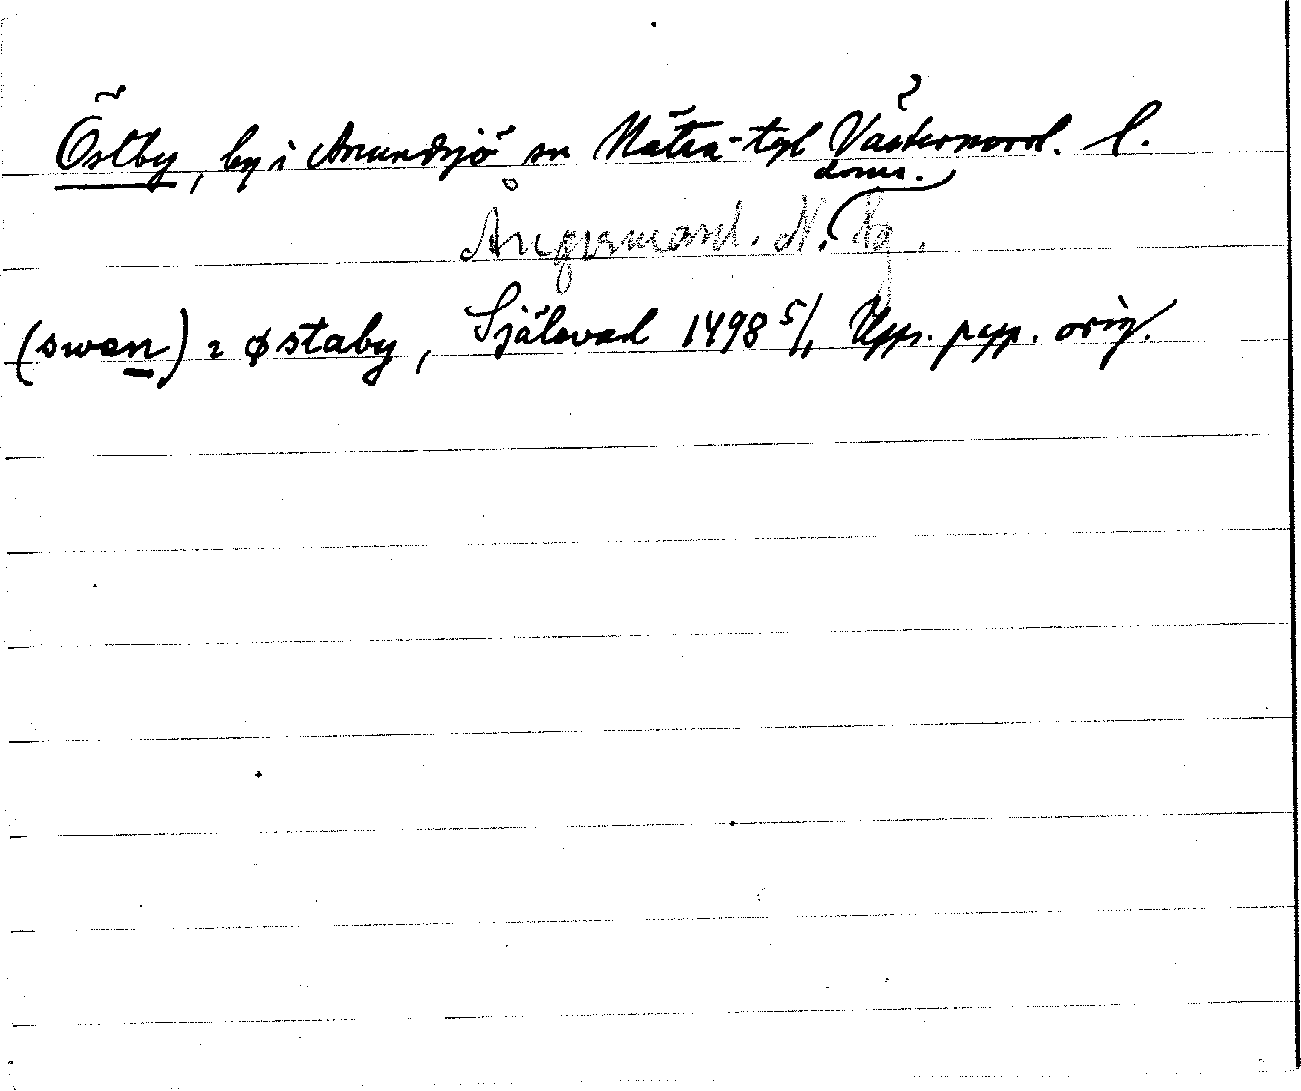 Östby, by i Anundsjö sn Nätra-tgl Västernorrl. l.
doms.
Ångermanl. N. hg.
(swen) i østaby, Själevad 1498 5/1 Upp. papp. orig.